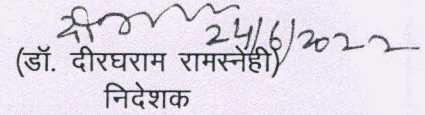 24/6/2022
(डॉ. दीरघराम रामस्नेही)
निदेशक